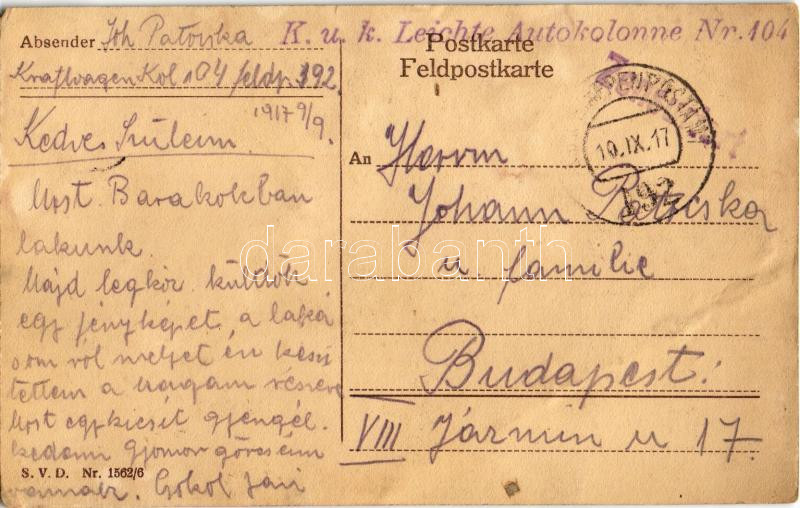 K. u. k. Leichte Autokolonne Nr. 104
Absender Joh Patocska
Kraftwagen Kol 104 feldp. 392.
1917 9/9.
Postkarte
Feldpostkarte
10.IX.17
An Herrn
Johann Patocska
u familie
Budapest.
VIII Jázmin u 17.
Kedves Szüleim
Most Barakokban
lakunk.
Majd legköz. küldök
egy fényképet a laká
som ról melyet én készí
tettem a magam részére
Most egy kicsit gyengél.
kedem Gyomor görcseim
vannak. Csókol Jani
S. V. D. Nr. 1562/6
darabanth